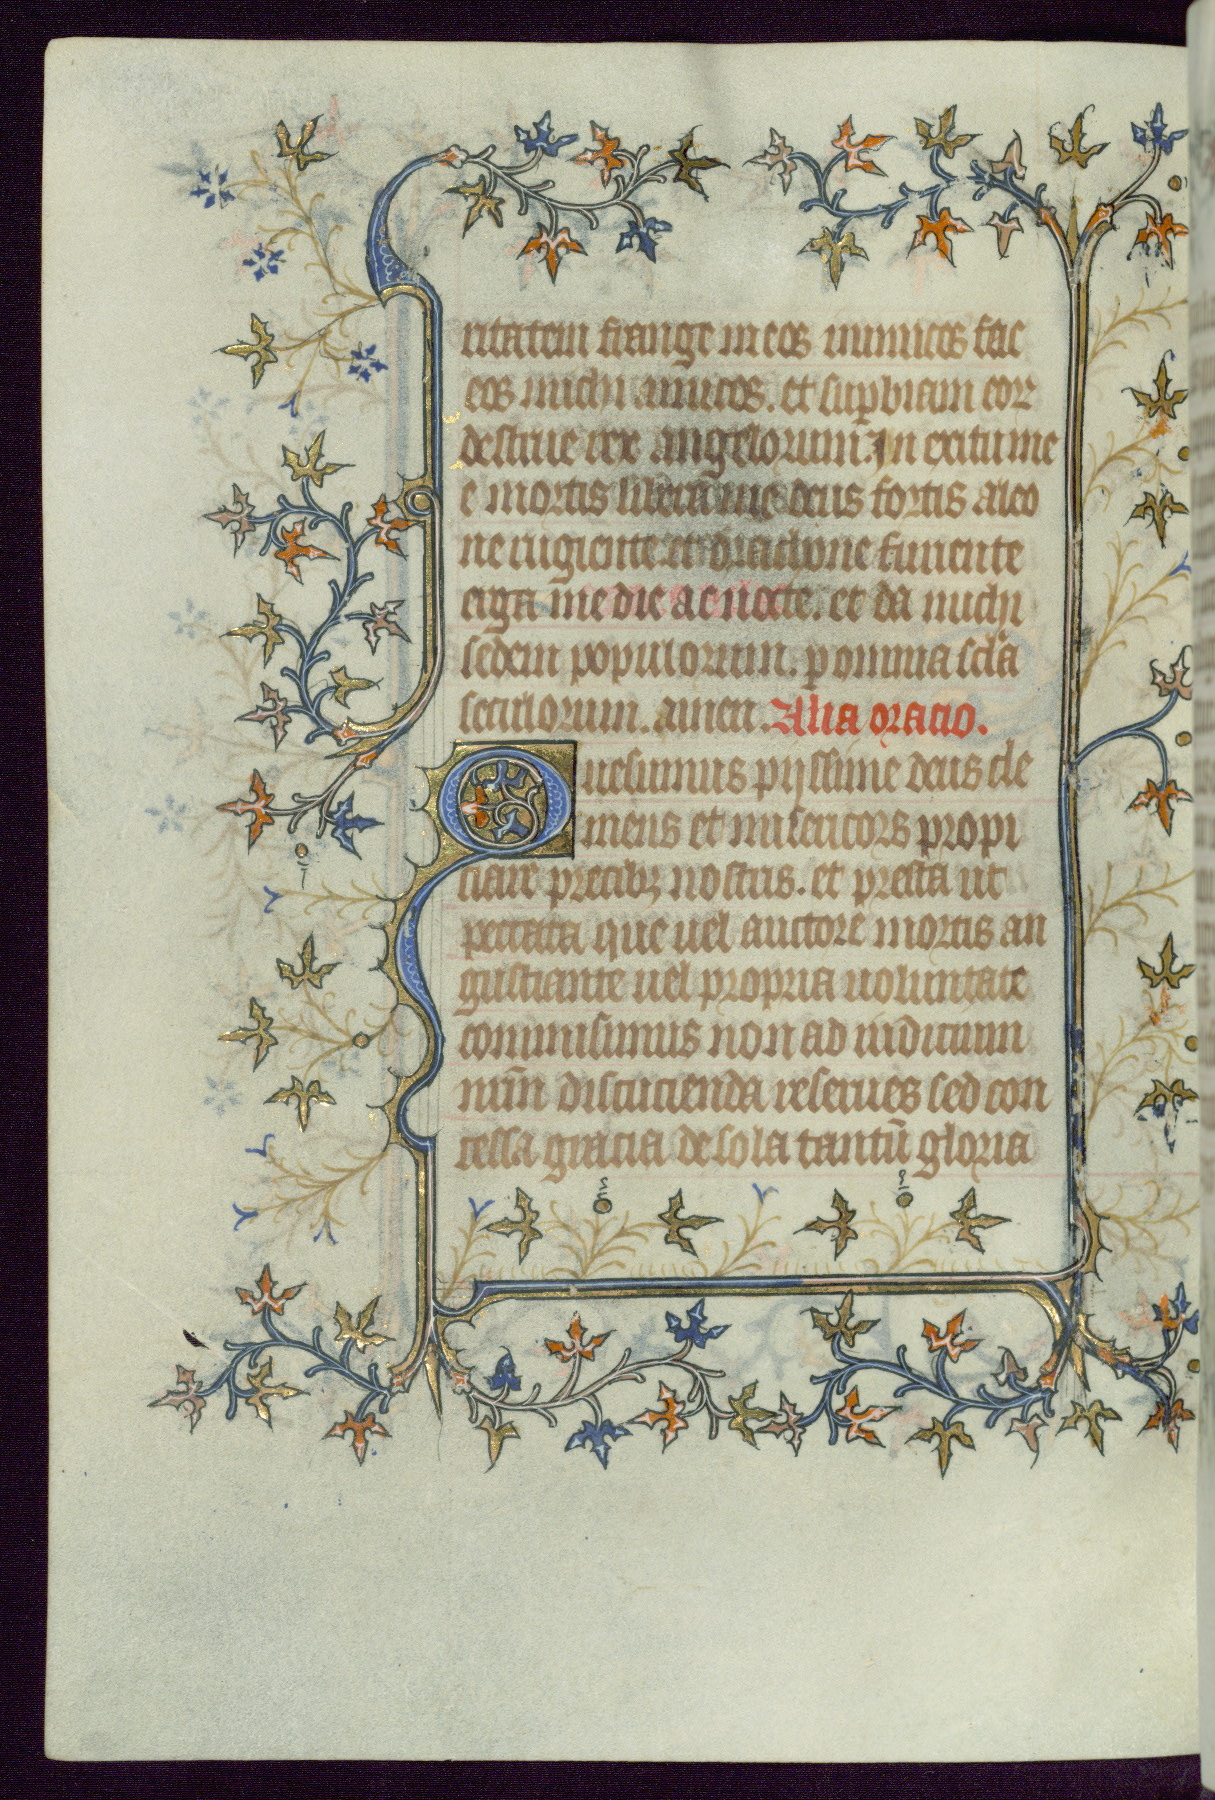 ritatem frange meos inimicos fac
eos michi amicos. et supbiam eor
destrue rex angelorum. In exitu me
e mortis libera me deus fortis a leo
ne rugiente et dracone furiente
erga me die ac nocte. et da michi
sedem populorum. p omnia scla
seculorum. amen. Alia oracio.
Quesumus pijssime deus cle
mens et misericors propi
ciare precibꝫ nostris. et presta ut
peccata que uel auctore mortis an
gustiante uel propria uoluntate
commisimus non ad iudicium
nr̄m discucienda reserues sed con
cessa gracia de sola tantū gloria